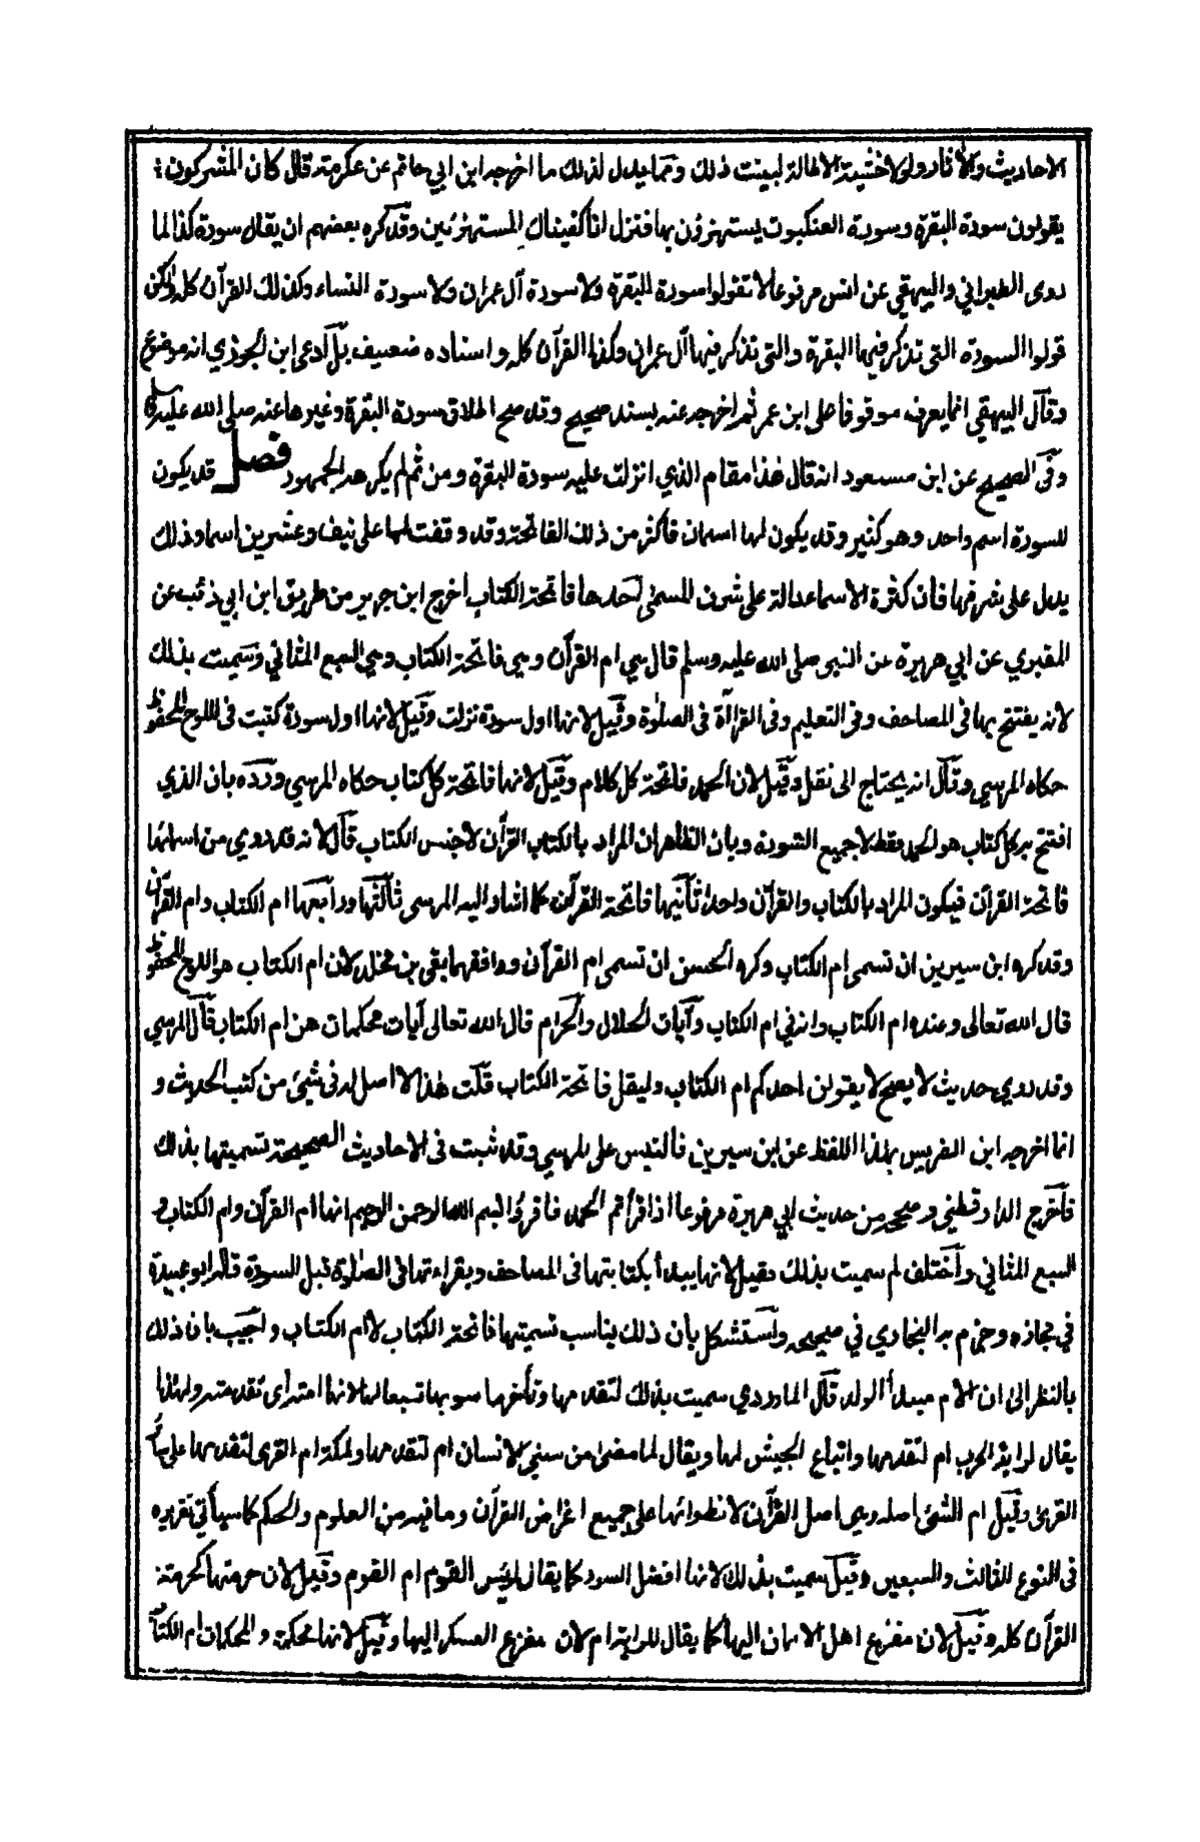 الاحاديث والآثار ولولا خشية الاطالة لبينت ذلك ومما يدل لذلك ما اخرجه ابن ابي حاتم عن عكرمة قال كان المشركون
يقولون سورة البقرة وسورة العنكبوت يستهزؤن بها فنزل انا كفيناك المستهزئين وقد كره بعضهم ان يقال سورة كذا لما
روى الطبراني والبيهقي عن انس مرفوعا لا تقولوا سورة البقرة ولا سورة آل عمران ولا سورة النساء وكذلك القرآن كله ولكن
قولوا السورة التي تذكر فيها البقرة والتي تذكر فيها آل عمران وكذا القرآن كله واسناده ضعيف بل ادعى ابن الجوزي انه موضوع
وقال البيهقي انما يعرف موقوفا على ابن عمر ثم اخرجه عنه بسند صحيح وقد صح اطلاق سورة البقرة وغيرها عنه صلى الله عليه وسلم
وفي الصحيح عن ابن مسعود انه قال هذا مقام الذي انزلت عليه سورة البقرة ومن ثم لم يكرهه الجمهور فصل قد يكون
للسورة اسم واحد وهو كثير وقد يكون لها اسمان فاكثر من ذلك الفاتحة وقد وقفت لها على نيف وعشرين اسما وذلك
يدل على شرفها فان كثرة الاسماء دالة على شرف المسمى احدها فاتحة الكتاب اخرج ابن جرير من طريق ابن ابي ذئب عن
المقبري عن ابي هريرة عن النبي صلى الله عليه وسلم قال هي ام القرآن وهي فاتحة الكتاب وهي السبع المثاني وسميت بذلك
لانه يفتتح بها في المصاحف وفي التعليم وفي القراآة في الصلوٰة وقيل لانها اول سورة نزلت وقيل لانها اول سورة كتبت في اللوح المحفوظ
حكاه المرسي وقال انه يحتاج الى نقل وقيل لان الحمد فاتحة كل كلام وقيل لانها فاتحة كل كتاب حكاه المرسي ورده بان الذي
افتتح به كل كتاب هو الحمد فقط لا جميع السورة وبان الظاهر ان المراد بالكتاب القرآن لا جنس الكتاب قال لانه قد روي من اسمائها
فاتحة القرآن فيكون المراد بالكتاب والقرآن واحدا ثانيها فاتحة القرآن كما اشار اليه المرسي ثالثها ورابعها ام الكتاب وام القرآن
وقد كره ابن سيرين ان تسمى ام الكتاب وكره الحسن ان تسمى ام القرآن ووافقهما بقي بن مخلد لان ام الكتاب هو اللوح المحفوظ
قال الله تعالى وعنده ام الكتاب وانه في ام الكتاب وآيات الحلال والحرام قال الله تعالى آيات محكمات هن ام الكتاب قال المرسي
وقد روي حديث لا يصح لا يقولن احدكم ام الكتاب وليقل فاتحة الكتاب قلت هذا لا اصل له في شيئ من كتب الحديث و
انما اخرجه ابن الضريس بهذا اللفظ عن ابن سيرين فالتبس على المرسي وقد ثبت في الاحاديث الصحيحة تسميتها بذلك
فاخرج الدارقطني وصححه من حديث ابي هريرة مرفوعا اذا قرأتم الحمد فاقرؤا بسم الله الرحمن الرحيم انها ام القرآن وام الكتاب و
السبع المثاني واختلف لم سميت بذلك فقيل لانها يبدأ بكتابتها في المصاحف وبقراءتها في الصلوٰة قبل السورة قاله ابو عبيدة
في مجازه وجزم به البخاري في صحيحه واستشكل بان ذلك يناسب تسميتها فاتحة الكتاب لا ام الكتاب واجيب بان ذلك
بالنظر الى ان الام مبدأ الولد قال الماوردي سميت بذلك لتقدمها وتأخر ما سوىها تبعا لها لانها امته اى تقدمته ولهذا
يقال لراية الحرب ام لتقدمها واتباع الجيش لها ويقال لما مضى من سني الانسان ام لتقدمها ولمكة ام القرى لتقدمها على سائر
القرى وقيل ام الشئ اصله وهي اصل القرآن لانطوائها على جميع اغراض القرآن وما فيه من العلوم والحكم كما سيأتي تقريره
في النوع الثالث والسبعين وقيل سميت بذلك لانها افضل السور كما يقال لرئيس القوم ام القوم وقيل لان حرمتها كحرمة
القرآن كله وقيل لان مفزع اهل الايمان اليها كما يقال للراية ام لان مفزع العسكر اليها وقيل لانها محكمة والمحكمات ام الكتاب